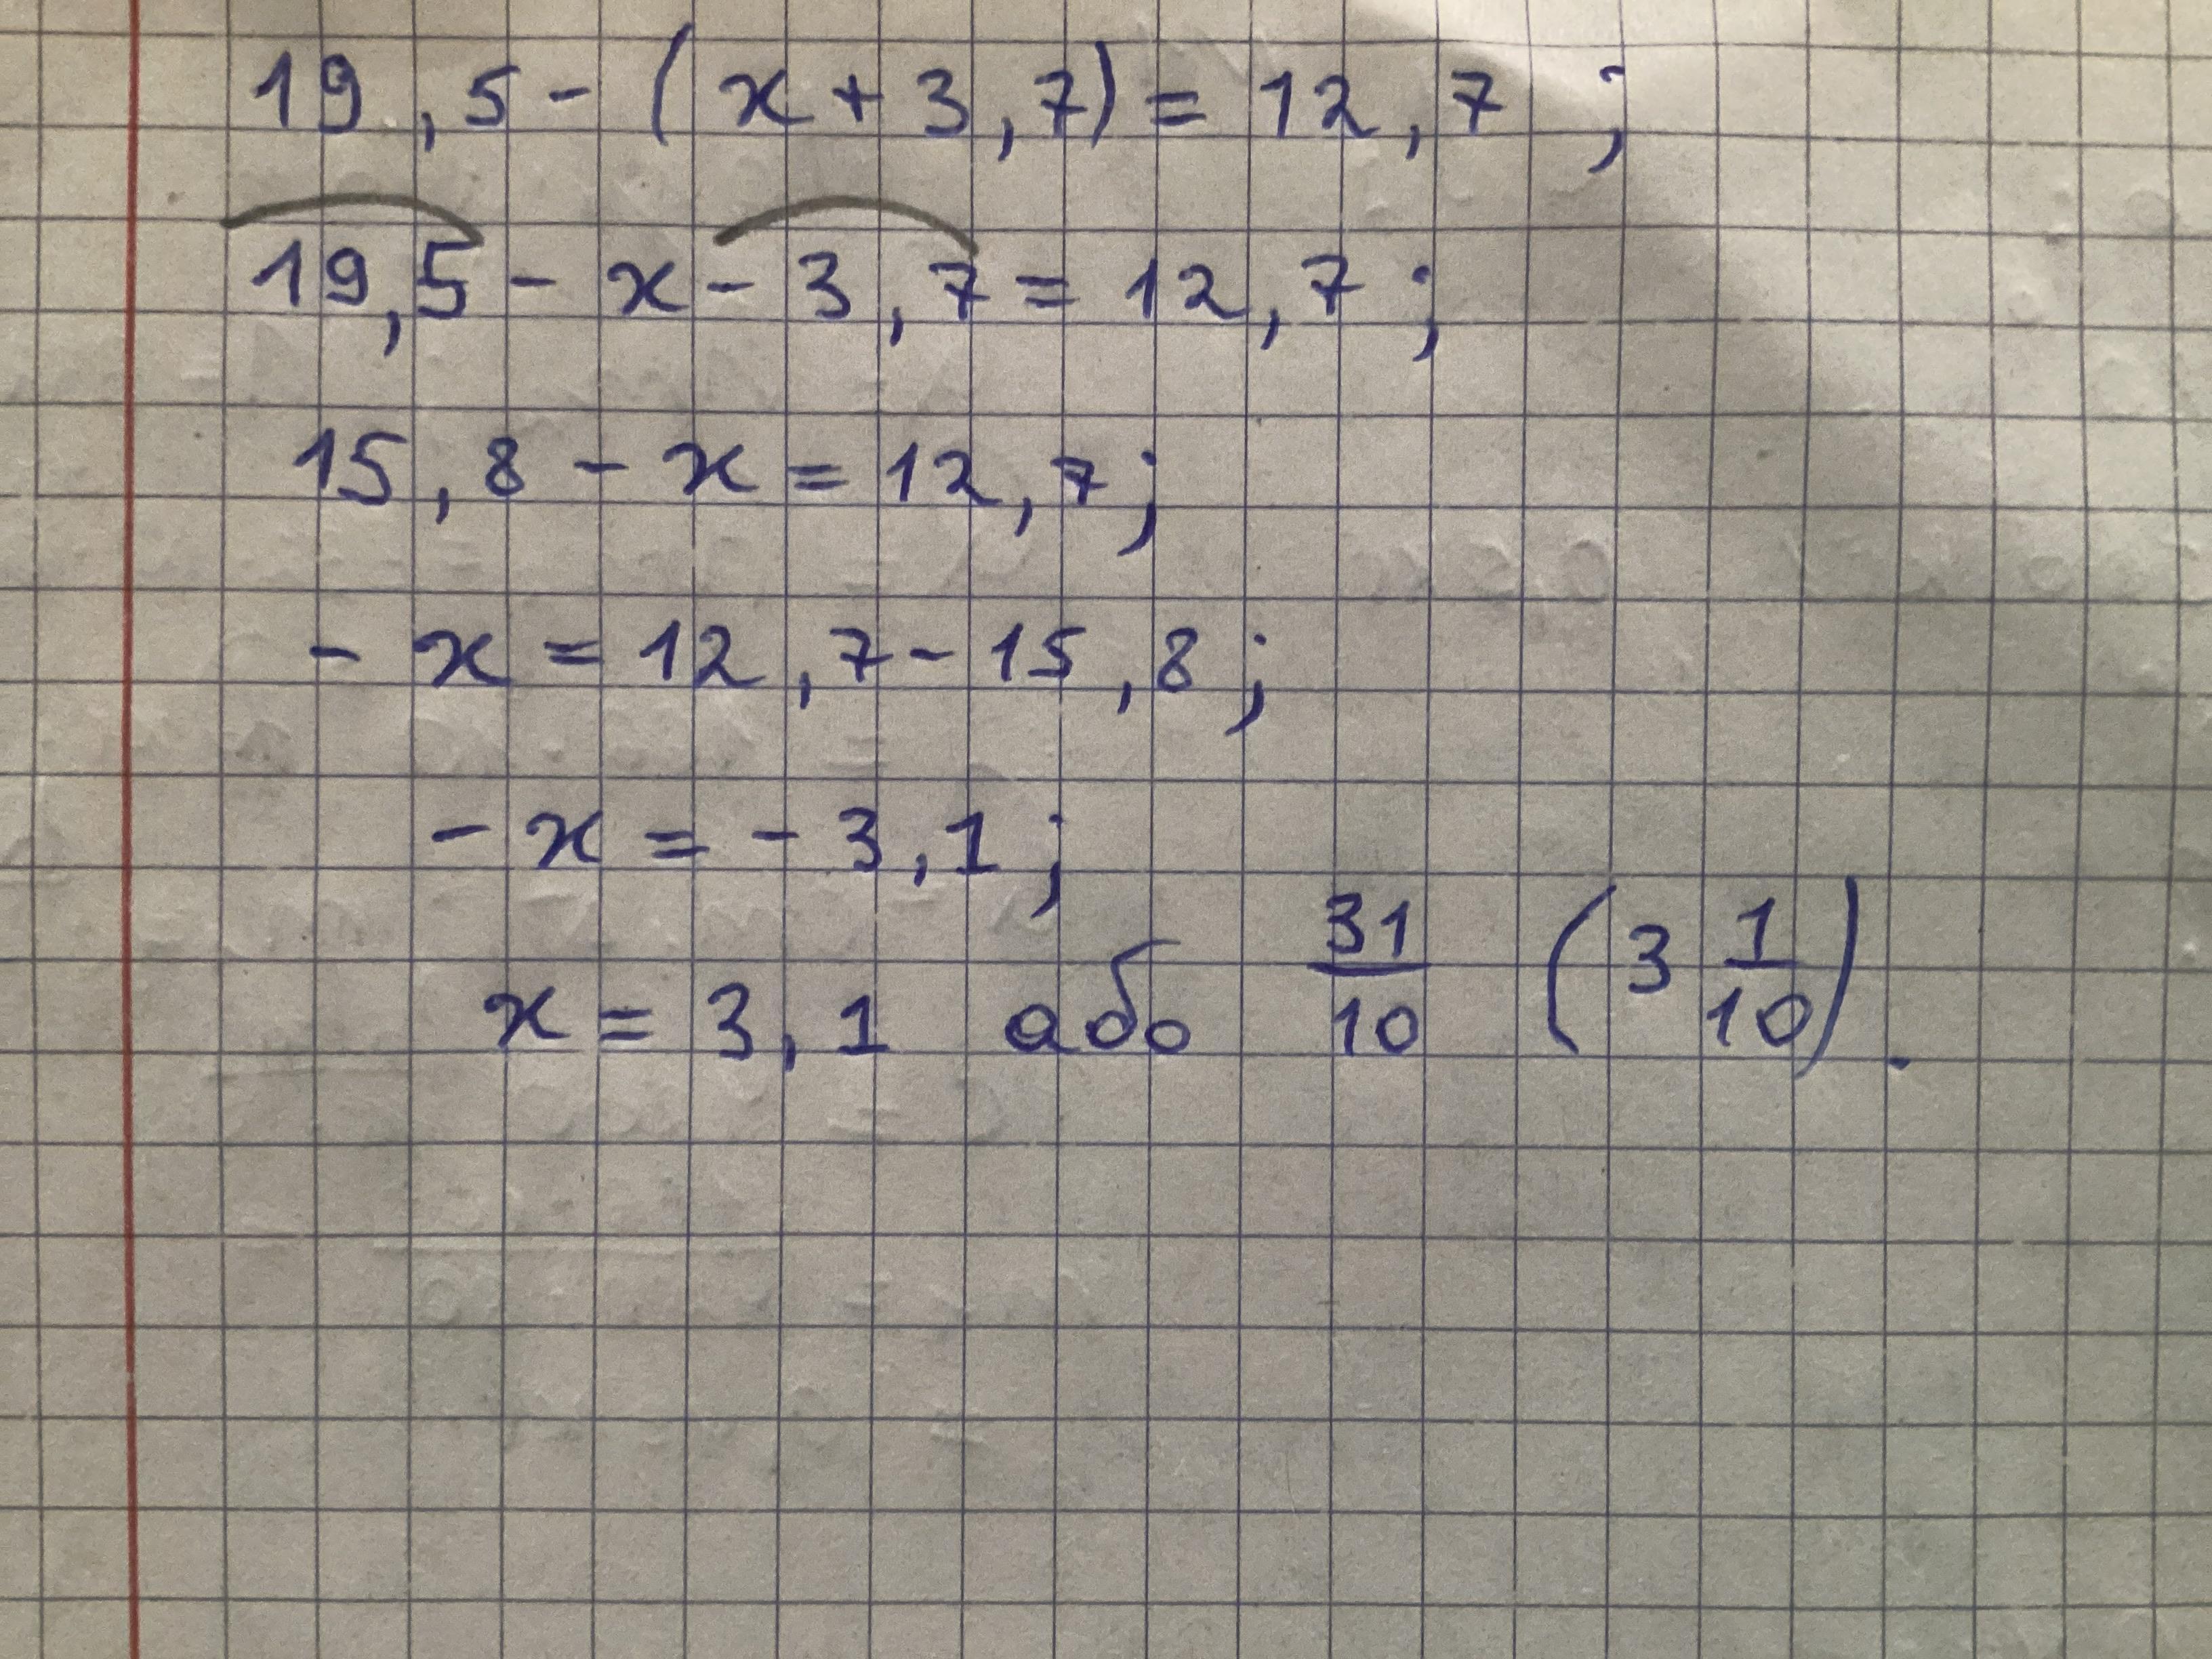 19,5 - (x + 3,7) = 12,7 ;
19,5 - x - 3,7 = 12,7 ;
15,8 - x = 12,7 ;
- x = 12,7 - 15,8 ;
- x = - 3,1 ;
x = 3,1 або 31/10 (3 1/10) .